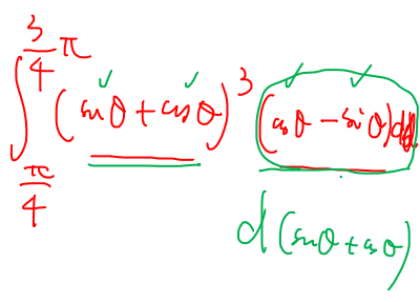 ∫_{π/4}^{3/4 π} (sinθ + cosθ)^3 (cosθ - sinθ)dθ
d(sinθ + cosθ)